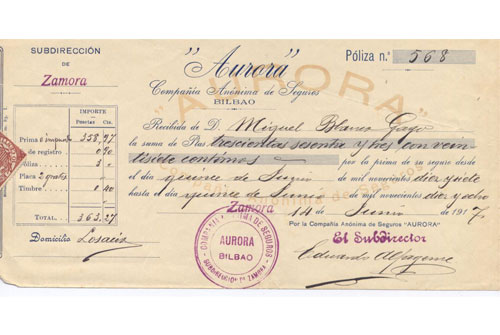 SUBDIRECCIÓN
DE
Zamora
"Aurora"
Compañía Anónima de Seguros
BILBAO
Póliza n.º 568
"AURORA"
IMPORTE
Pesetas Cts.
Prima é impuesto 358,97
de registro 0,90
Póliza 3
Placa gratis
Timbre 0 40
TOTAL. 363,27
Domicilio Losacio
Recibida de D. Miguel Blanco Gago
la suma de Ptas. trescientas sesenta y tres con vein-
tisiete centimos por la prima de su seguro desde
el día quince de Junio de mil novecientos diez y siete
hasta el día quince de Junio de mil novecientos diez y ocho
Zamora 14 de Junio de 1917
Por la Compañía Anónima de Seguros "AURORA"
El Subdirector
Eduardo Alfageme
COMPAÑIA ANONIMA DE SEGUROS
AURORA
BILBAO
SUBDIRECCION DE ZAMORA